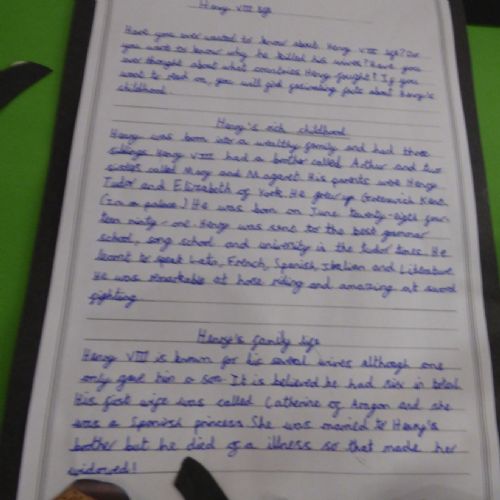 Henry VIII life
Have you ever wanted to know about Henry VIII life? Do
you want to know why he killed his wives? Have you
ever thought about what countries Henry fought? If you
want to read on, you will find fascinating facts about Henry's
childhood.
Henry's rich childhood
Henry was born into a wealthy family and had three
siblings. Henry VIII had a brother called Arthur and two
sisters called Mary and Magaret. His parents were Henry
Tudor and Elizabeth of York. He grew up Greenwich Kent.
(In a palace.) He was born on June twenty-eight four-
teen ninty-one. Henry was sent to the best grammar
school, song school and university in the tudor times. He
learnt to speak Latin, French, Spanish, Italian and Literature.
He was remarkable at horse riding and amazing at sword
fighting.
Henry's family life
Henry VIII is known for his several wives although one
only gave him a son. It is believed he had six in total.
His first wife was called Catherine of Aragon and she
was a Spanish princess. She was married to Henry's
brother but he died of a illness so that made her
widowed!